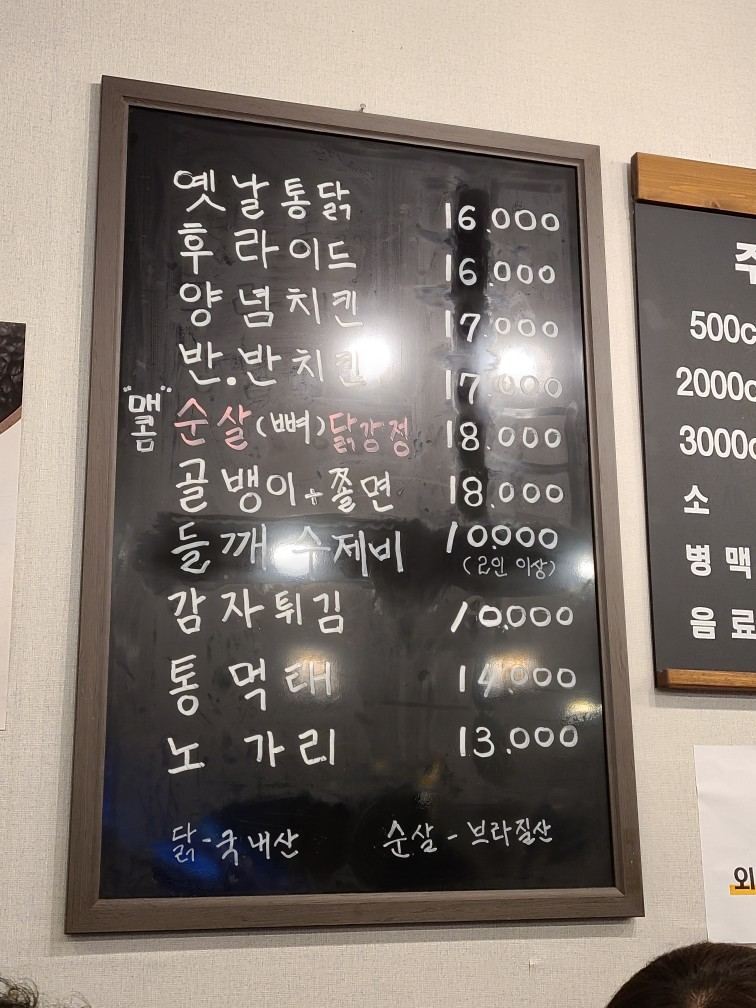 옛날통닭 16.000
후라이드 16.000
양념치킨 17.000
반.반치킨 17.000
"매콤" 순살(뼈)닭강정 18.000
골뱅이+쫄면 18.000
들깨 수제비 10.000
(2인 이상)
감자튀김 10.000
통먹태 14.000
노가리 13.000
닭-국내산 순살-브라질산
500c
2000c
3000c
소
병맥
음료
외